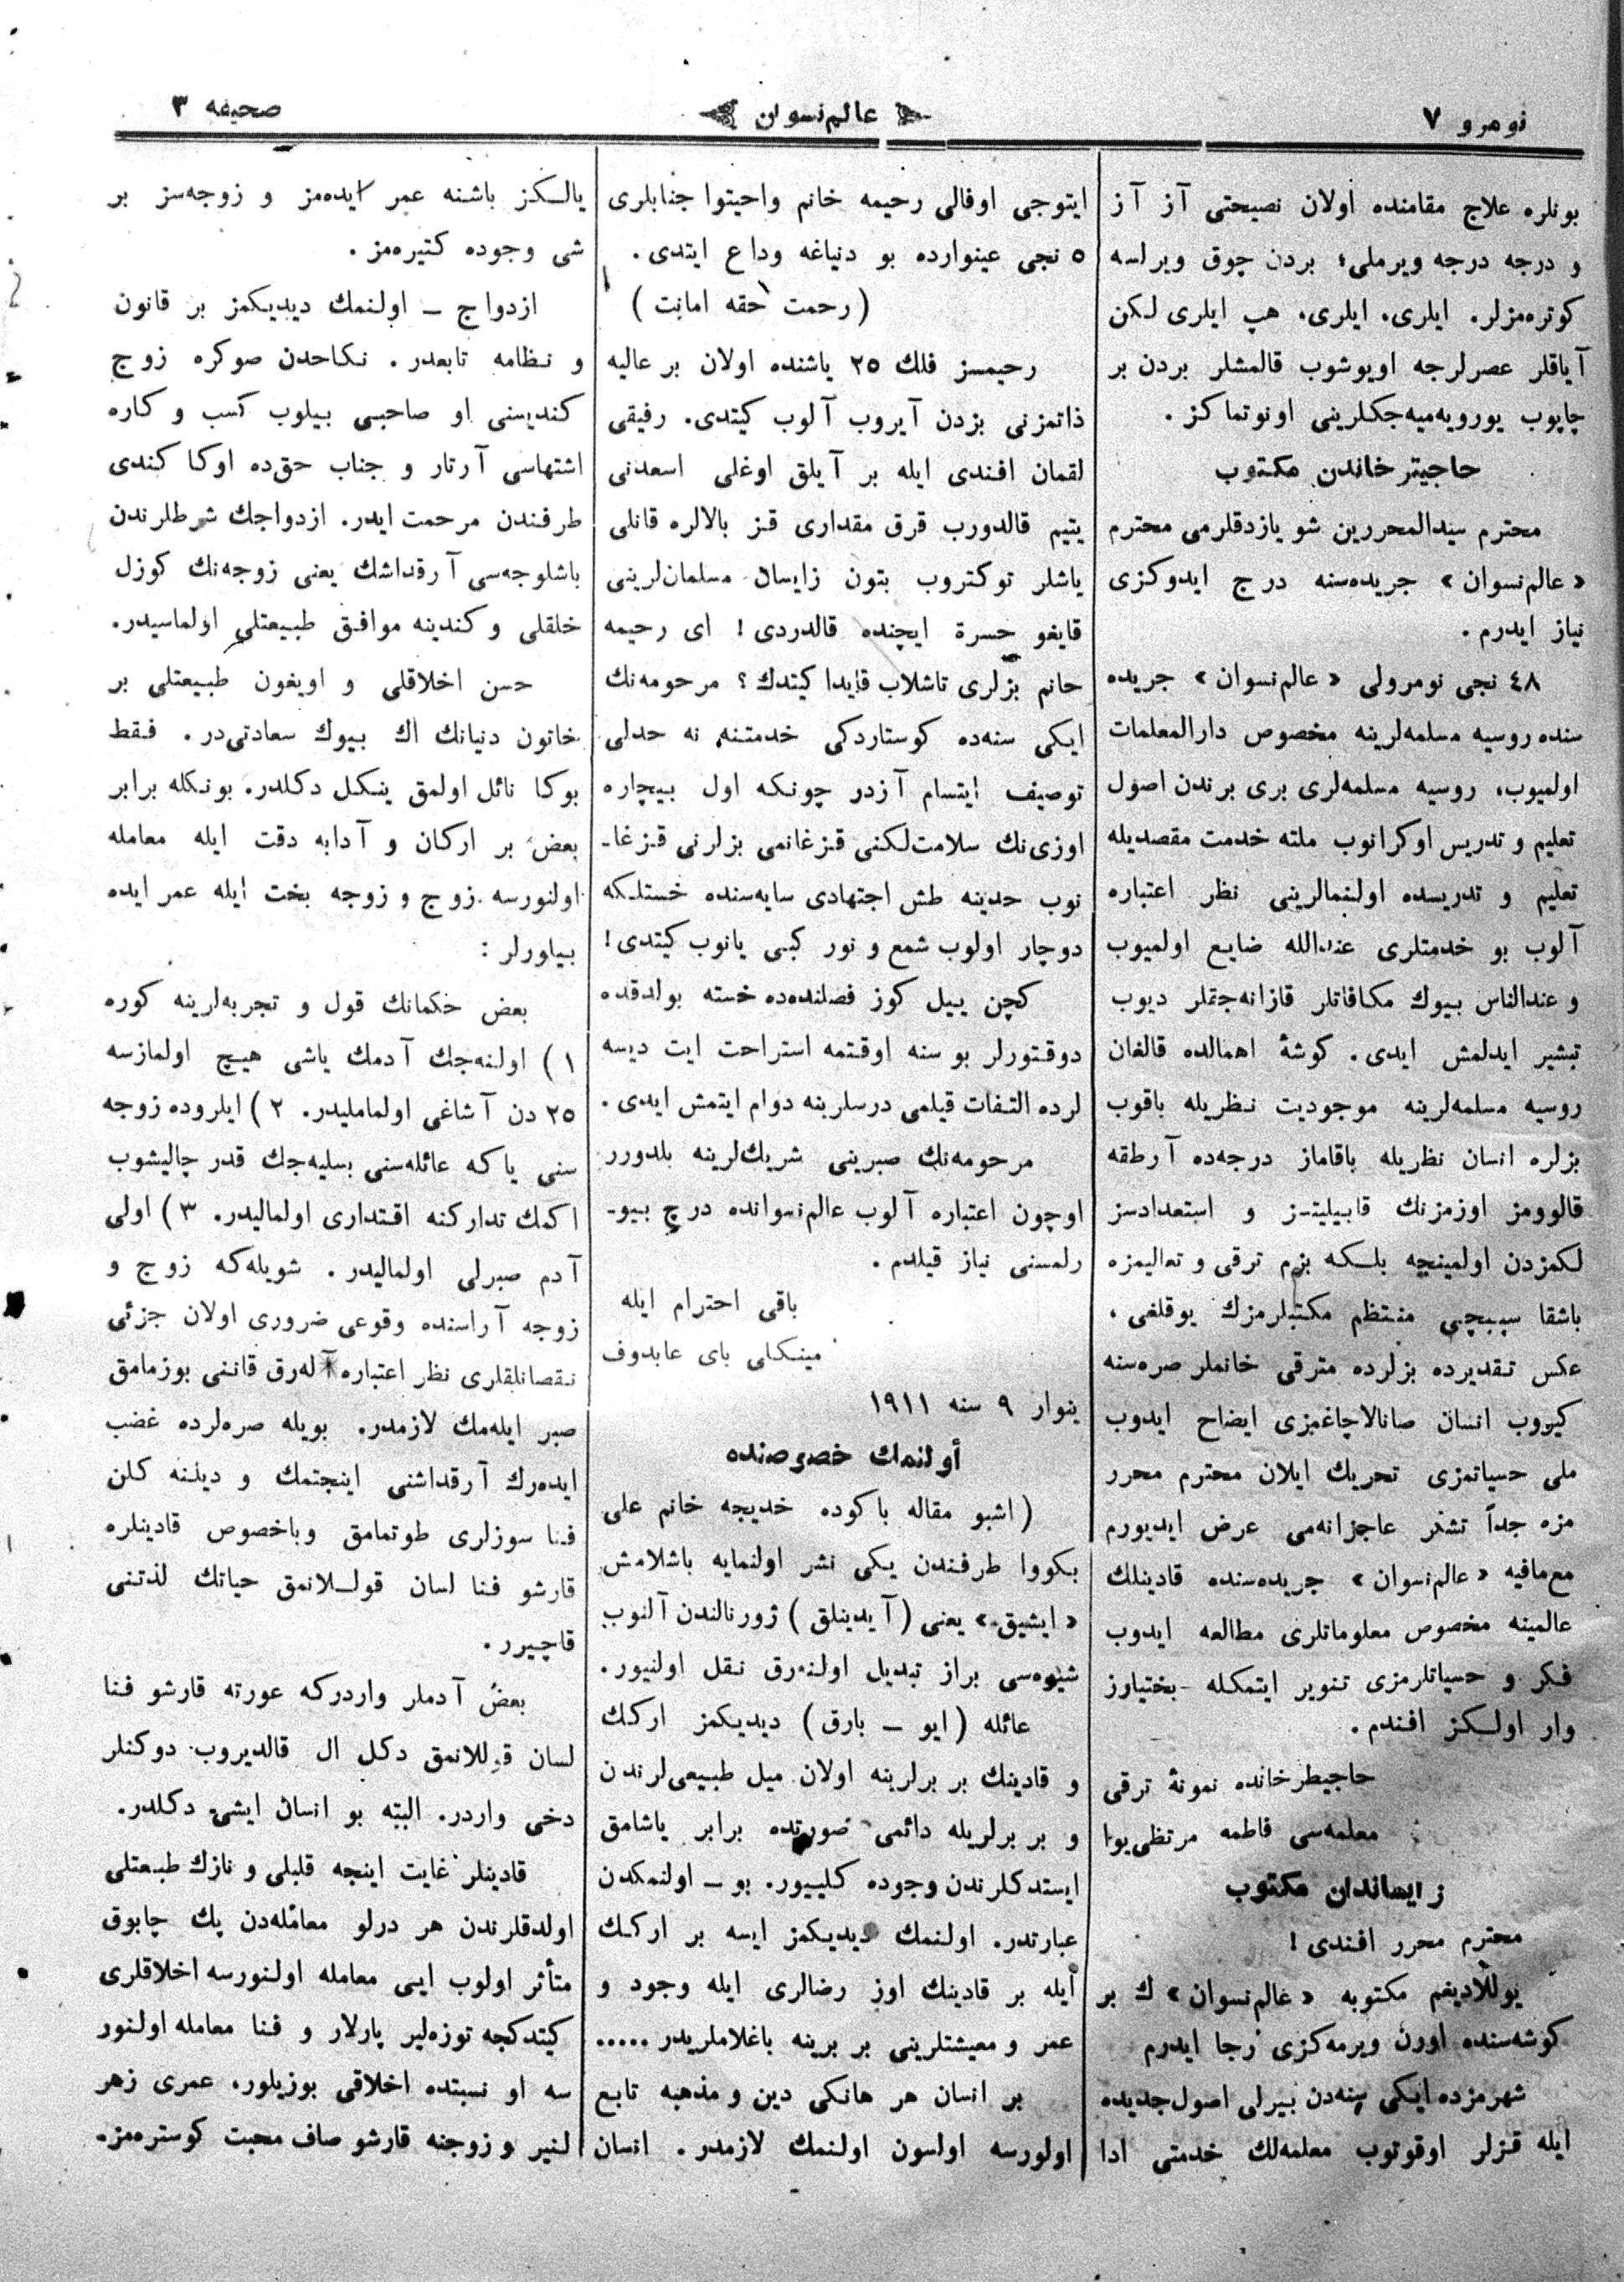 نومرو ٧
عالم نسوان
صحيفه ٣
بونلره علاج مقامنده اولان نصيحتى آز آز
و درجه درجه ويرملى؛ بردن چوق ويرلسه
كوتره‌مزلر. ايلرى، ايلرى، هپ ايلرى لكن
آياقلر عصرلرجه اويوشوب قالمشلر بردن بر
چاپوب يورويه‌ميه‌جكلرينى اونوتماكز.
حاجيترخاندن مكتوب
محترم سيدالمحررين شو يازدقلرمى محترم
«عالم‌نسوان» جريده‌سنه درج ايدوكزى
نياز ايدرم.
٤٨ نجى نومرولى «عالم‌نسوان» جريده
سنده روسيه مسلمه‌لرينه مخصوص دارالمعلمات
اولميوب، روسيه مسلمه‌لرى برى برندن اصول
تعليم و تدريس اوكرانوب ملته خدمت مقصديله
تعليم و تدريسده اولنمالرينى نظر اعتباره
آلوب بو خدمتلرى عندالله ضايع اولميوب
و عندالناس بيوك مكافاتلر قازانه‌جقلر ديوب
تبشير ايدلمش ايدى. كوشهٔ اهمالده قالغان
روسيه مسلمه‌لرينه موجوديت نظريله باقوب
بزلره انسان نظريله باقاماز درجه‌ده آرطقه
قالوومز اوزمزنك قابيليتسز و استعدادسز
لكمزدن اولمينچه بلكه بزم ترقى و تعاليمزه
باشقا سببچى منتظم مكتبلرمزك يوقلغى،
عكس تقديرده بزلرده مترقى خانملر صره‌سنه
كيروب انسان صانالاچاغمزى ايضاح ايدوب
ملى حسياتمزى تحريك ايلان محترم محرر
مزه جداً تشكر عاجزانه‌مى عرض ايديورم
مع‌مافيه «عالم‌نسوان» جريده‌سنده قادينلك
عالمينه مخصوص معلوماتلرى مطالعه ايدوب
فكر و حسياتلرمزى تنوير ايتمكله بختيارز
وار اولكز افندم.
حاجيطرخانده نمونهٔ ترقى
معلمه‌سى فاطمه مرتظى‌يوا
زايساندان مكتوب
محترم محرر افندى!
يوللاديغم مكتوبه «عالم‌نسوان» ك بر
كوشه‌سنده اورن ويرمه‌كزى رجا ايدرم
شهرمزده ايكى سنه‌دن بيرلى اصول جديده
ايله قزلر اوقوتوب معلمه‌لك خدمتى ادا
ايتوجى اوفالى رحيمه خانم واحيتوا جنابلرى
٥ نجى عينوارده بو دنياغه وداع ايتدى.
(رحمت حقه امانت)
رحيمسز فلك ٢٥ ياشنده اولان بر عاليه
ذاتمزنى بزدن آيروب آلوب كيتدى. رفيقى
لقمان افندى ايله بر آيلق اوغلى اسعدنى
يتيم قالدورب قرق مقدارى قز بالالره قانلى
ياشلر توكتروب بتون زايسان مسلمان‌لرينى
قايغو حسرة ايچنده قالدردى! اى رحيمه
حانم بزلرى تاشلاب قايدا كيتدك؟ مرحومه‌نك
ايكى سنه‌ده كوستاردكى خدمتنه نه حدلى
توصيف ايتسام آزدر چونكه اول بيچاره
اوزى‌نك سلامت‌لكنى قزغانمى بزلرنى قزغا-
نوب حدينه طش اجتهادى سايه‌سنده خستلكه
دوچار اولوب شمع و نور كبى يانوب كيتدى!
كچن ييل كوز فصلنده‌ده خسته بولدقده
دوقتورلر بو سنه اوقتمه استراحت ايت ديسه
لرده التفات قيلمى درسلرينه دوام ايتمش ايدى.
مرحومه‌نك صبرينى شريك‌لرينه بلدورر
اوچون اعتباره آلوب عالم‌نسوانده درج بيو-
رلمسنى نياز قيلدم.
باقى احترام ايله
مينكلى باى عابدوف
ينوار ٩ سنه ١٩١١
أولنمك خصوصنده
(اشبو مقاله باكوده خديجه خانم على
بكووا طرفندن يكى نشر اولنمايه باشلامش
«ايشيق» يعنى (آيدينلق) ژورنالندن آلنوب
شيوه‌سى براز تبديل اولنه‌رق نقل اولنيور.
عائله (ايو - بارق) ديديكمز اركك
و قادينك بر برلرينه اولان ميل طبيعى‌لرندن
و بر برلريله دائمى صورتده برابر ياشامق
ايستدكلرندن وجوده كلييور. بو - اولنمكدن
عبارتدر. اولنمك ديديكمز ايسه بر اركك
ايله بر قادينك اوز رضالرى ايله وجود و
عمر و معيشتلرينى بر برينه باغلاملريدر .....
بر انسان هر هانكى دين و مذهبه تابع
اولورسه اولسون اولنمك لازمدر. انسان
يالكز باشنه عمر ايده‌مز و زوجه‌سز بر
شى وجوده كتيره‌مز.
ازدواج - اولنمك ديديكمز بر قانون
و نظامه تابعدر. نكاحدن صوكره زوج
كنديسنى او صاحبى بيلوب كسب و كاره
اشتهاسى آرتار و جناب حق‌ده اوكا كندى
طرفندن مرحمت ايدر. ازدواجك شرطلرندن
باشلوجه‌سى آرقداشك يعنى زوجه‌نك كوزل
خلقلى و كندينه موافق طبيعتلى اولماسيدر.
حسن اخلاقلى و اويغون طبيعتلى بر
خاتون دنيانك اك بيوك سعادتى‌در. فقط
بوكا نائل اولمق ينكل دكلدر. بونكله برابر
بعض بر اركان و آدابه دقت ايله معامله
اولنورسه زوج و زوجه بخت ايله عمر ايده
بياورلر:
بعض حكمانك قول و تجربه‌لرينه كوره
١) اولنه‌جك آدمك ياشى هيچ اولمازسه
٢٥ دن آشاغى اولمامليدر. ٢) ايلروده زوجه
سنى ياكه عائله‌سنى بسليه‌جك قدر چاليشوب
اكمك تداركنه اقتدارى اولماليدر. ٣) اولى
آدم صبرلى اولماليدر. شويله‌كه زوج و
زوجه آراسنده وقوعى ضرورى اولان جزئى
نقصانلقلرى نظر اعتباره آله‌رق قاننى بوزمامق
صبر ايله‌مك لازمدر. بويله صره‌لرده غضب
ايده‌رك آرقداشنى اينجتمك و ديننه كلن
فنا سوزلرى طوتمامق وباخصوص قادينلره
قارشو فنا لسان قوللانمق حياتك لذتنى
قاچيرر.
بعض آدملر واردركه عورته قارشو فنا
لسان قوللانمق دكل ال قالديروب دوكنلر
دخى واردر. البته بو انسان ايشى دكلدر.
قادينلر غايت اينجه قلبلى و نازك طبعتلى
اولدقلرندن هر درلو معامله‌دن پك چابوق
متأثر اولوب ايى معامله اولنورسه اخلاقلرى
كيتدكچه توزه‌لير پارلار و فنا معامله اولنور
سه او نسبتده اخلاقى بوزيلور، عمرى زهر
لنير و زوجنه قارشو صاف محبت كوستره‌مز.